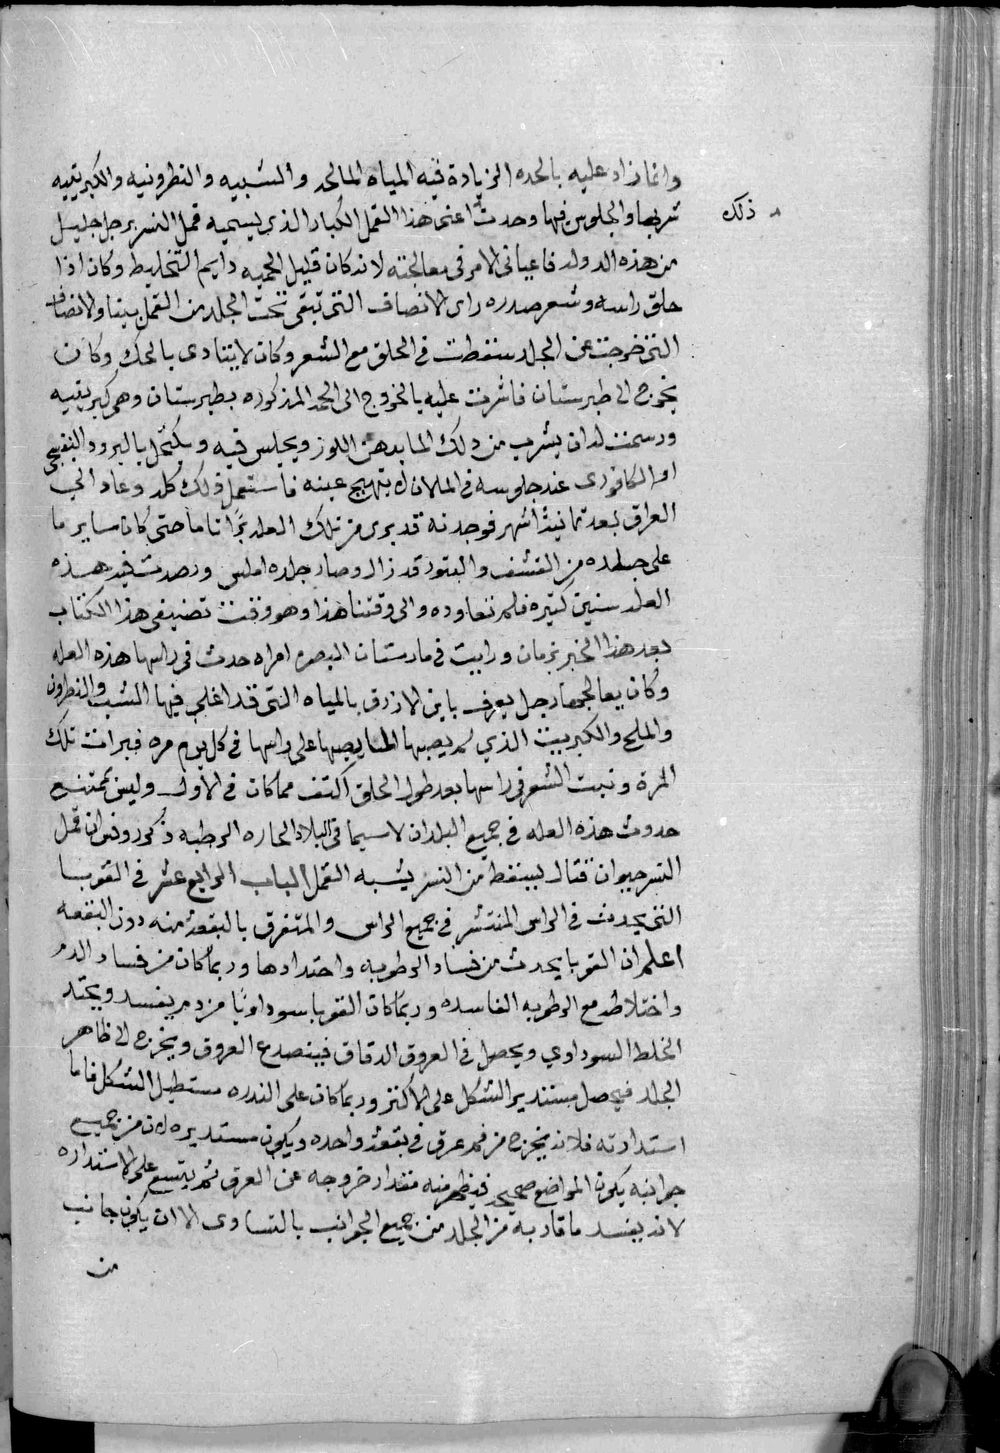 وانما زاد عليه بالحده الزيادة فيه المياه المالحه والشبيه والنطرونيه والكبريتيه
شربها والجلوس فيها وحدث اعني هذا القمل الكبار الذي يسميه قمل النسر برجل جليل
ذلك
من هذه الدوله فاعياني الامر في معالجته لانه كان قليل الحميه دايم التخليط وكان اذا
حلق راسه وشعر صدره راى الانصاف التي تبقى تحت الجلد من القمل بينا والانصاف
التي خرجت عن الجلد سقطت في الحلق مع الشعر وكان لا يتنادى بالحك وكان
يخرج الى طبرستان فاشرت عليه بالخروج الى الحمه المذكوره بطبرستان وهي كبريتيه
ورسمت له ان يشرب من ذلك الما بدهن اللوز ويجلس فيه ويكتحل بالبرود البنفسجي
او الكافوري عند جلوسه في الما لان لا يتهيج عينه فاستعمل ذلك كله وعاد الى
العراق بعد ثمانية اشهر فوجدته قد بري من تلك العله برءا تاما حتى كان ساير ما
على جلده من القشف والبثور قد زال وصار جلده املس ورصدت فيه هذه
العله سنين كثيره فلم تعاوده والى وقتنا هذا وهو وقت تصنيفي هذا الكتاب
بعد هذا الخبر بزمان ورايت في مارستان البصره امراه حدث في راسها هذه العله
وكان يعالجها رجل يعرف بابن الازرق بالمياه التي قد اغلي فيها الشب والنطرون
والملح والكبريت الذي لم يصبها المنا يصبها على راسها في كل يوم مره فبرات تلك
المرة ونبت الشعر في راسها بعد طول الحلق اكثف مما كان في الاول وليس يمتنع
حدوث هذه العله في جميع البلدان لا سيما في البلاد الحاره الرطبه ذكر روفس ان قمل
النسر حيوان قتال يسقط من النسر يشبه القمل الباب الرابع عشر في القوبا
التي يحدث في الراس المنتشر في جميع الراس والمتفرق بالبقعة منه دون البقعه
اعلم ان القوبا يحدث من فساد الرطوبه واحتدادها وربما كان من فساد الدم
واختلاطه مع الرطوبه الفاسده وربما كان القوبا سوداويا من دم يفسد ويحتد
الخلط السوداوي ويحصل في العروق الدقاق فينصدع العروق ويخرج الى ظاهر
الجلد فيحصل مستدير الشكل على الاكثر وربما كان على الندره مستطيل الشكل فاما
استدارته فلانه يخرج من فم عرق في بقعة واحده ويكون مستديره لان من جميع
جوانبه يكون المواضع صحيحه فيظهر منه مقدار خروجه عن العرق ثم يتسع على الاستداره
لانه يفسد ما قاربه من الجلد من جميع الجوانب بالتساوى الا ان يكون جانب
من